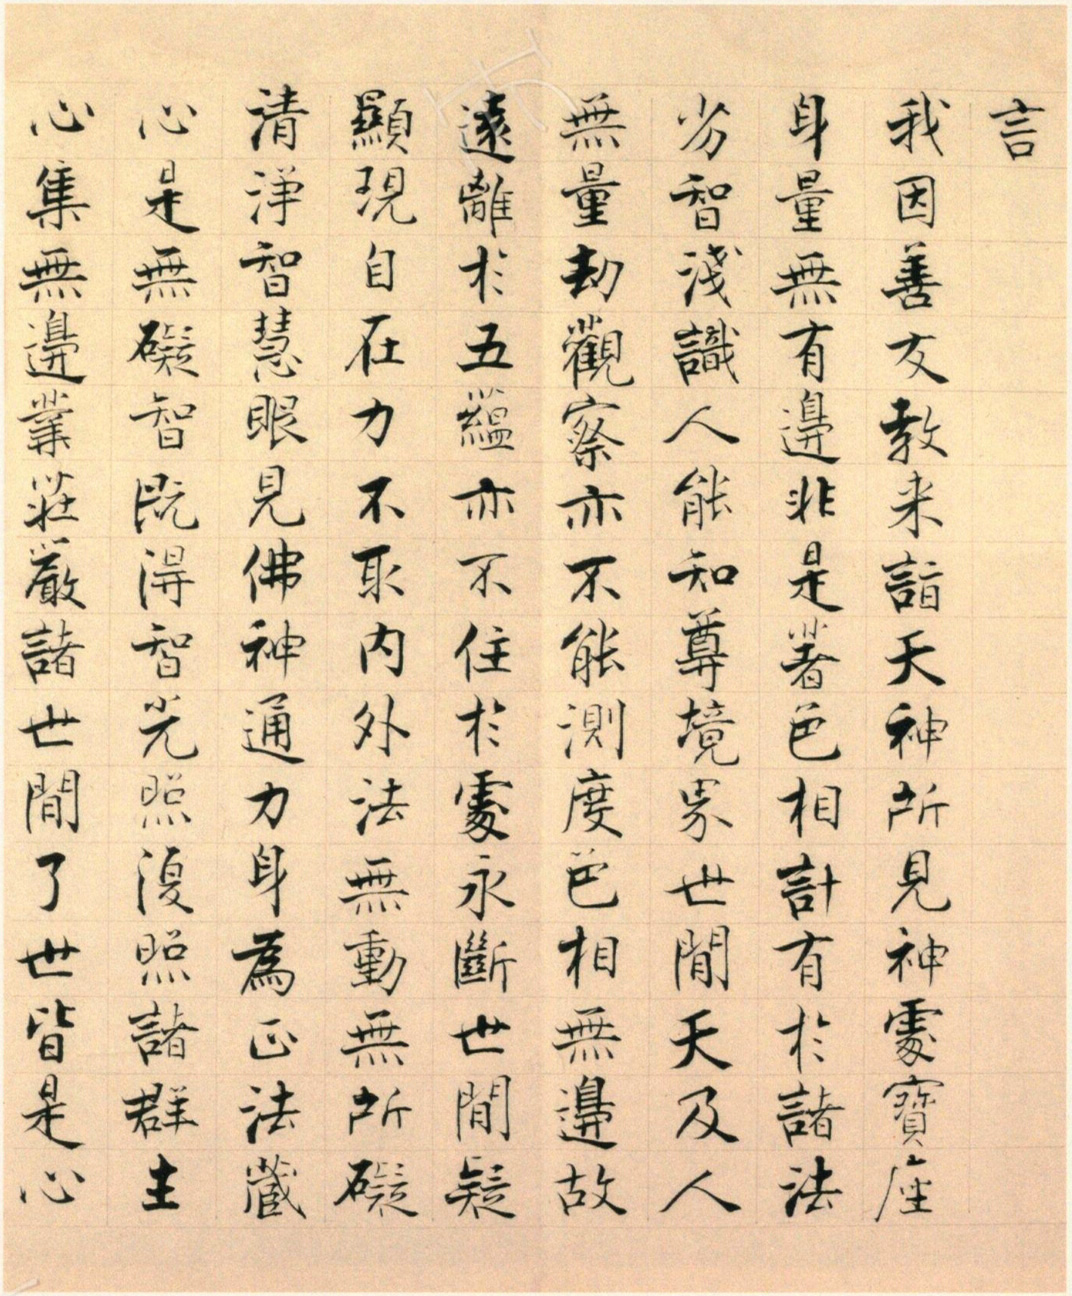 言
我因善友教来詣天神所見神處寶座
身量無有邊非是著色相計有於諸法
劣智淺識人能知尊境界世間天及人
無量劫觀察亦不能測度色相無邊故
遠離於五蘊亦不住於處永斷世間疑
顯現自在力不取内外法無動無所礙
清淨智慧眼見佛神通力身為正法藏
心是無礙智既得智光照復照諸群生
心集無邊業莊嚴諸世間了世皆是心